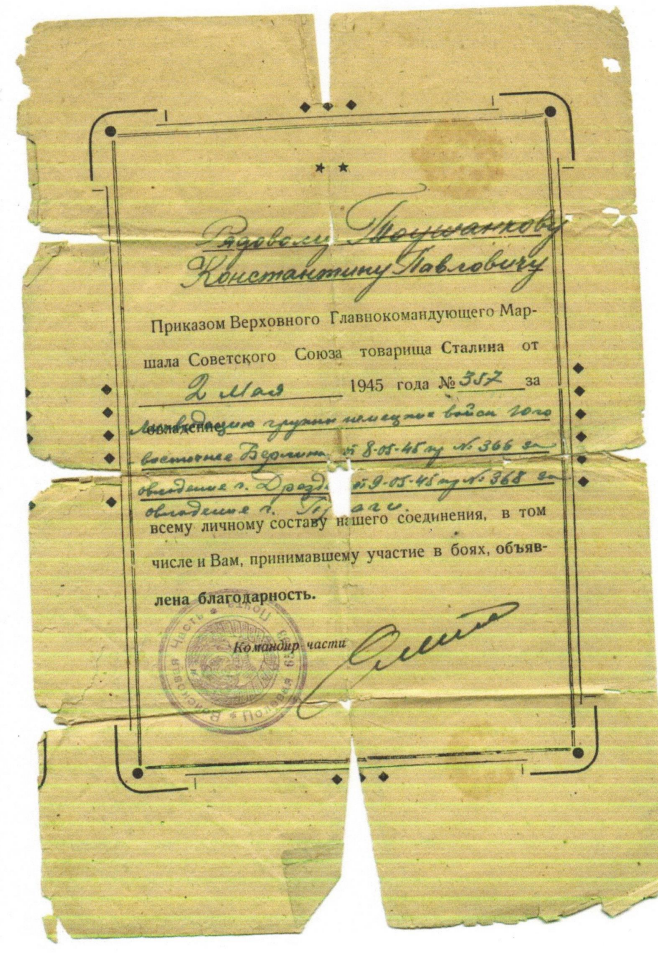 Рядовому
Константину Павловичу
Приказом Верховного Главнокомандующего Мар-
шала Советского Союза товарища Сталина от
2 Мая 1945 года № 357 за
Ликвидацию группы немецких войск юго
овладение
восточнее Берлина 8-05-45 пр № 366 за
овладение г. Дрезд 9-05-45 пр № 368 за
овладение г.
всему личному составу нашего соединения, в том
числе и Вам, принимавшему участие в боях, объяв-
лена благодарность.
Командир части
Войсковая Часть Полевая Почта